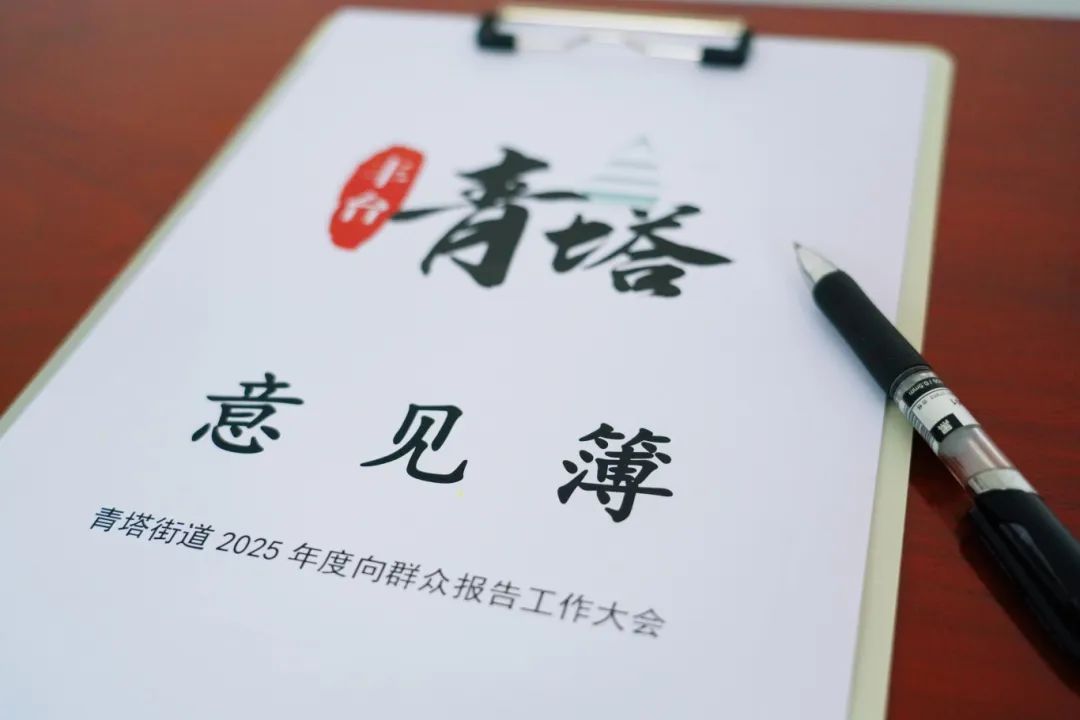 丰台
青塔
意见簿
青塔街道2025年度向群众报告工作大会